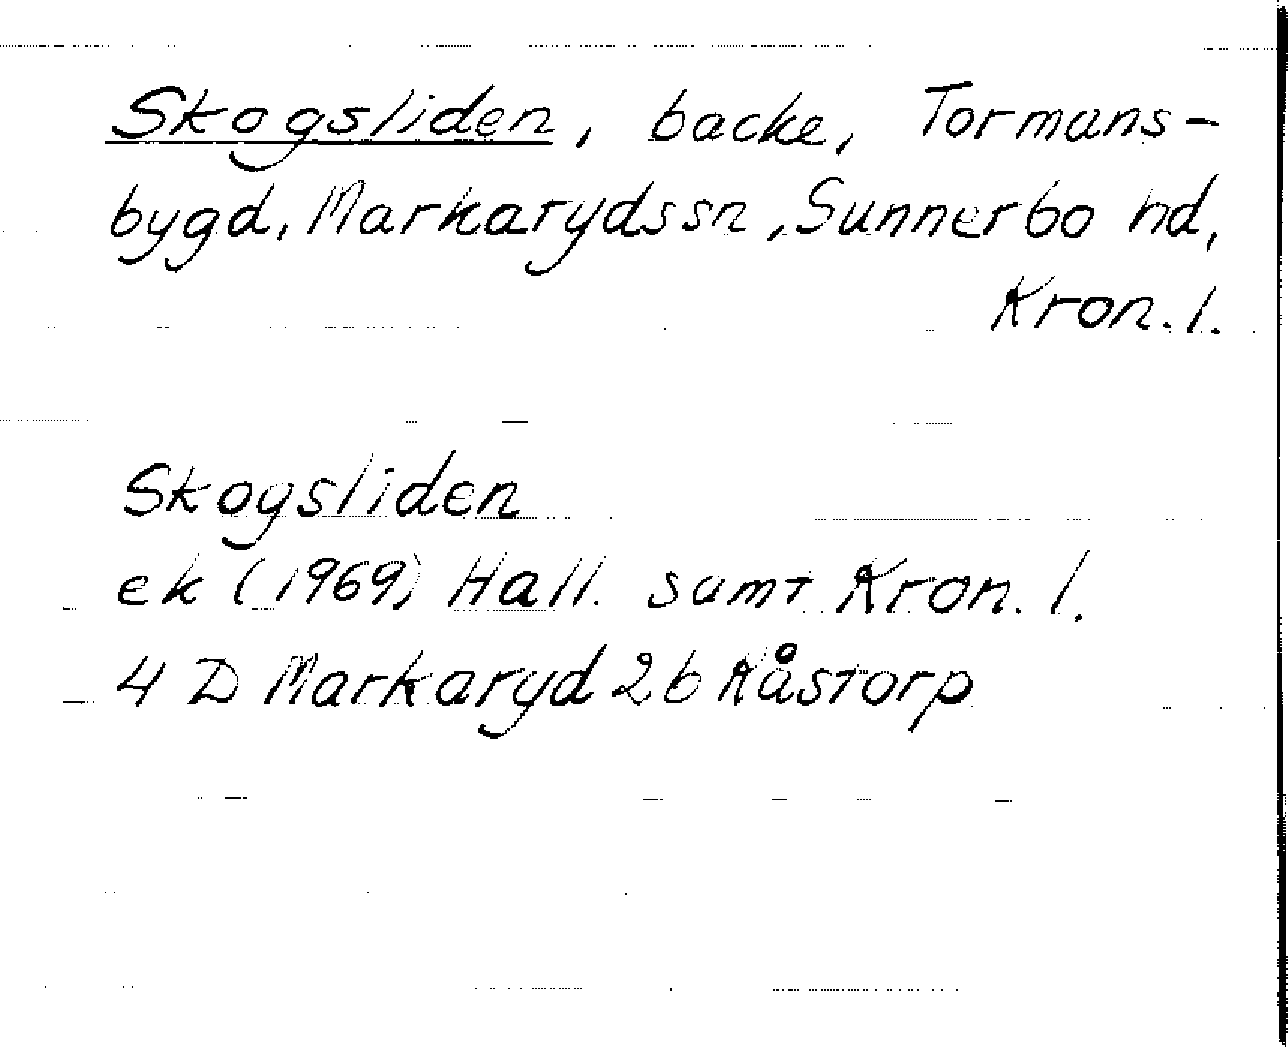 Skogsliden, backe, Tormans-
bygd, Markarydssn, Sunnerbo hd,
Kron. l.
Skogsliden
ek (1969) Hall. samt Kron. l.
4 D Markaryd 2b Råstorp